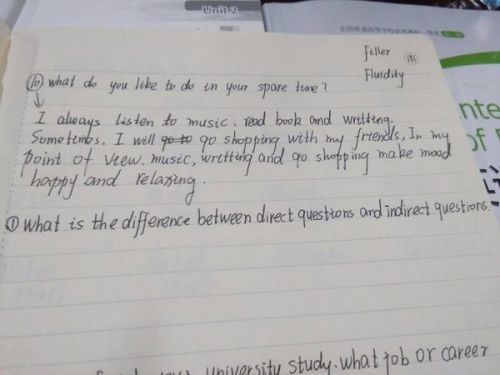 Unit 2
全国普通高等学校优秀教材
filler
Fluidity
⑩ what do you like to do in your spare time?
I always listen to music. read book and writting.
Sometimes. I will go to go shopping with my friends, In my
point of view. music, writting and go shopping make mood
happy and relaxing.
① what is the difference between direct questions and indirect questions.
university study. what job or career